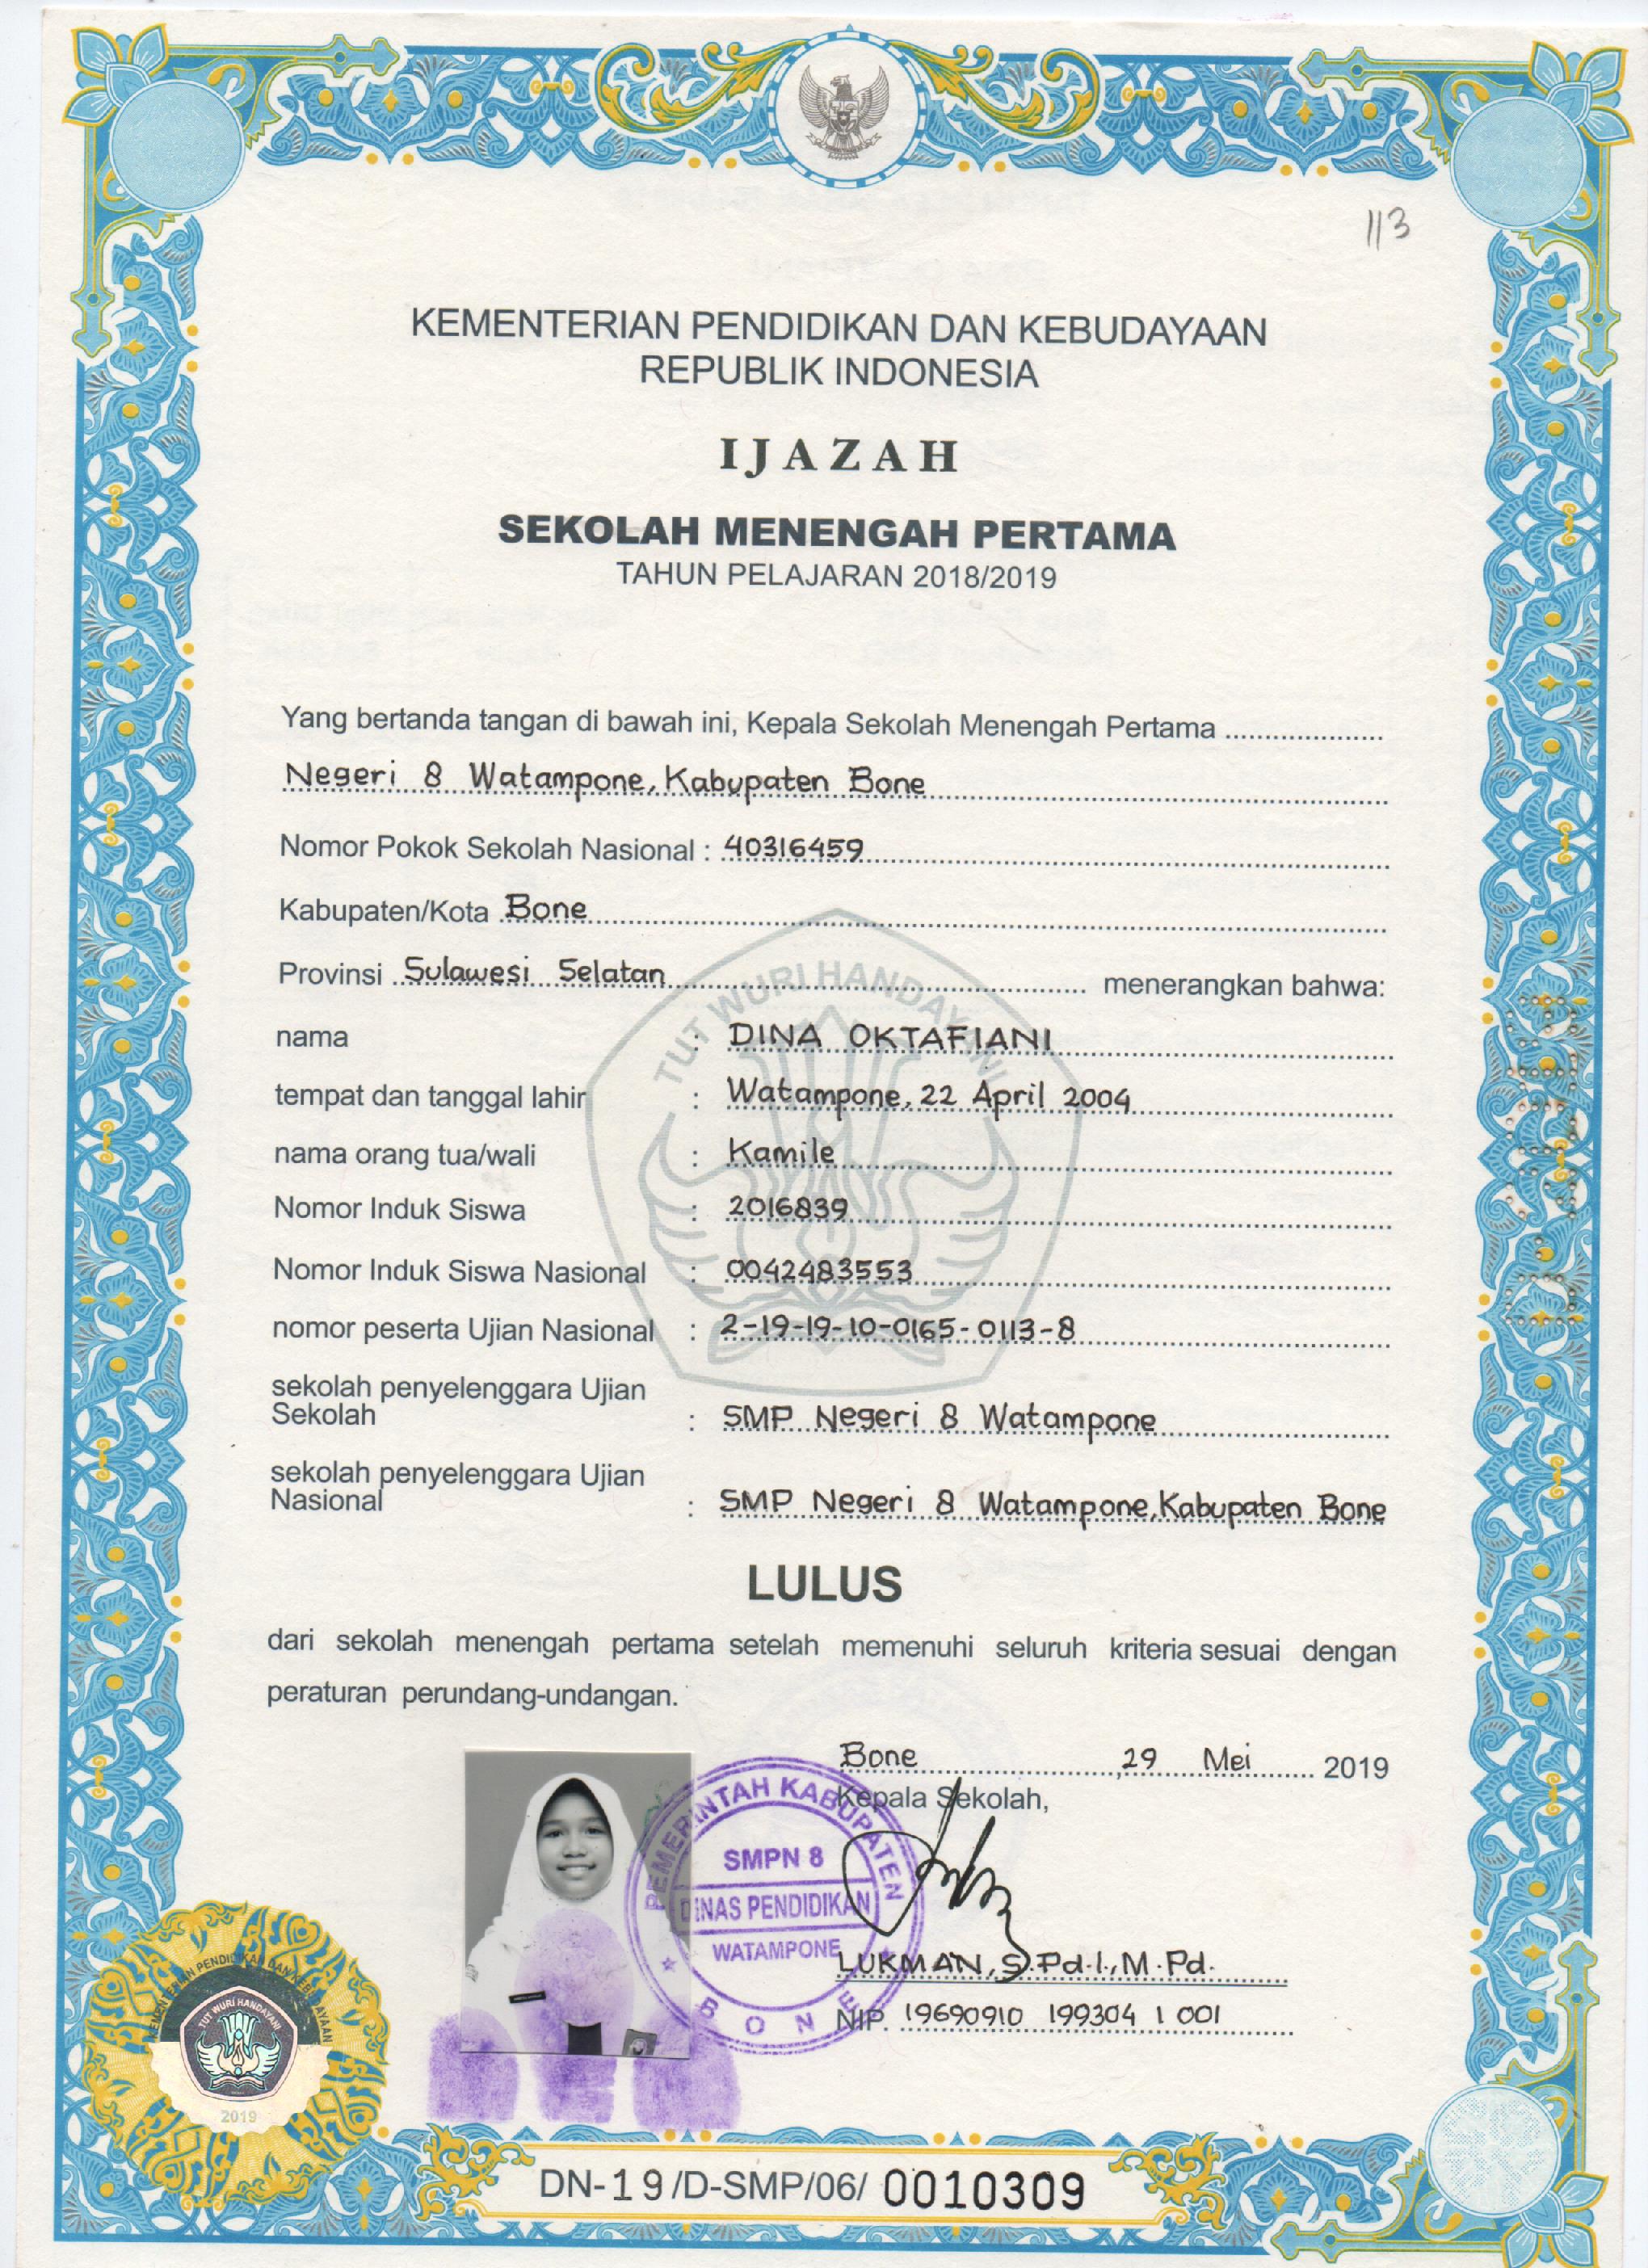 113
KEMENTERIAN PENDIDIKAN DAN KEBUDAYAAN
REPUBLIK INDONESIA
IJAZAH
SEKOLAH MENENGAH PERTAMA
TAHUN PELAJARAN 2018/2019
Yang bertanda tangan di bawah ini, Kepala Sekolah Menengah Pertama
Negeri 8 Watampone, Kabupaten Bone
Nomor Pokok Sekolah Nasional : 40316459
Kabupaten/Kota Bone
Provinsi Sulawesi Selatan menerangkan bahwa:
TUT WURI HANDAYANI
nama : DINA OKTAFIANI
tempat dan tanggal lahir : Watampone, 22 April 2004
nama orang tua/wali : Kamile
Nomor Induk Siswa : 2016839
Nomor Induk Siswa Nasional : 0042483553
nomor peserta Ujian Nasional : 2-19-19-10-0165-0113-8
sekolah penyelenggara Ujian
Sekolah : SMP Negeri 8 Watampone
sekolah penyelenggara Ujian
Nasional : SMP Negeri 8 Watampone, Kabupaten Bone
LULUS
dari sekolah menengah pertama setelah memenuhi seluruh kriteria sesuai dengan
peraturan perundang-undangan.
Bone, 29 Mei 2019
Kepala Sekolah,
PEMERINTAH KABUPATEN
SMPN 8
DINAS PENDIDIKAN
WATAMPONE
BONE
LUKMAN, S.Pd.I., M.Pd.
NIP. 19690910 199304 1 001
KEMENTERIAN PENDIDIKAN DAN KEBUDAYAAN
TUT WURI HANDAYANI
2019
DN-19/D-SMP/06/ 0010309